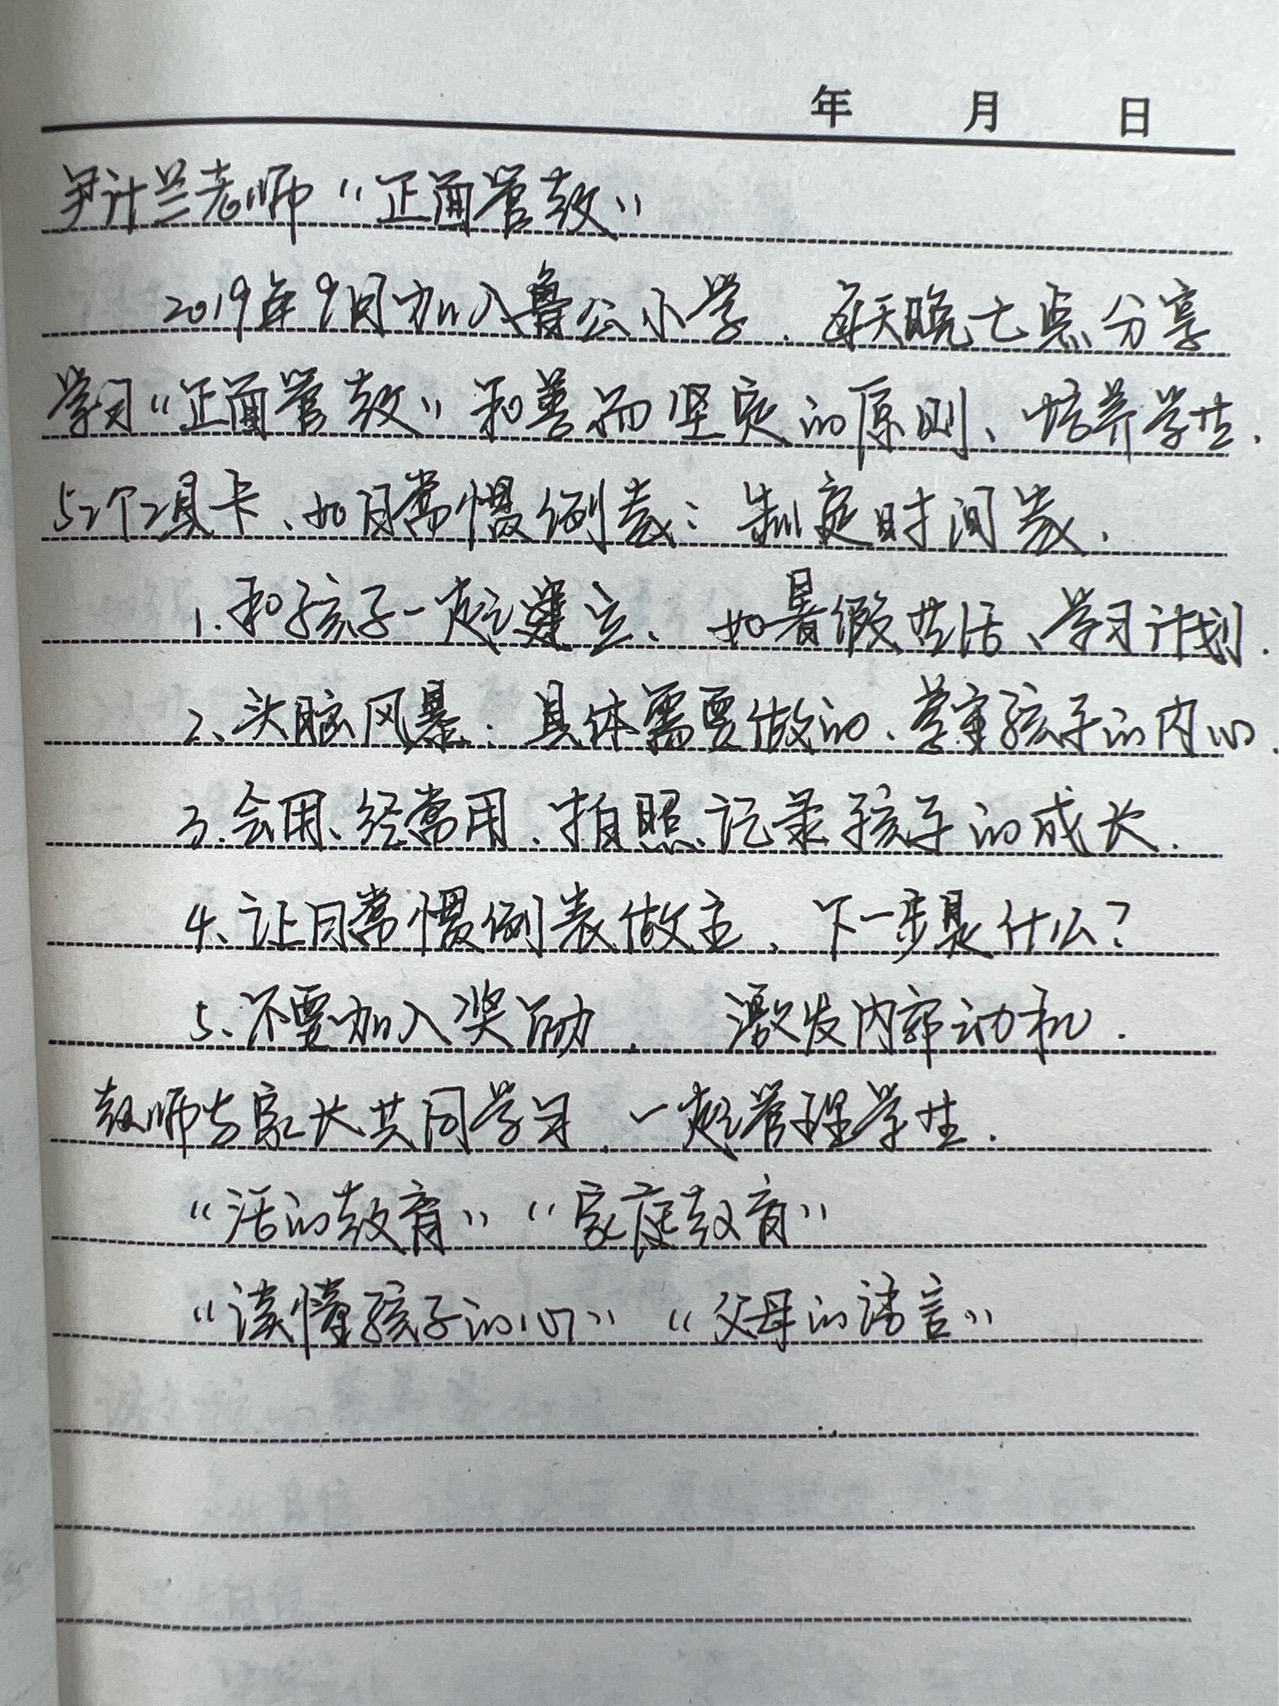 年 月 日
尹计兰老师“正面管教”
2019年9月加入鲁公小学、每天晚七点分享
学习“正面管教”和善而坚定的原则、培养学生.
52个工具卡、如日常惯例表：制定时间表.
1.和孩子一起建立、如暑假生活、学习计划.
2、头脑风暴.具体需要做的、尊重孩子的内心.
3.会用、经常用、拍照、记录孩子的成长.
4、让日常惯例表做主、下一步是什么？
5、不要加入奖励. 激发内部动机.
教师与家长共同学习、一起管理学生.
“活的教育”“家庭教育”
“读懂孩子的心”“父母的语言”